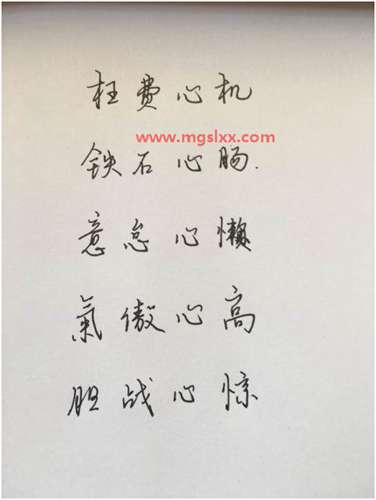 枉费心机
www.mgslxx.com
铁石心肠.
意怠心懒
氣傲心高
胆战心惊